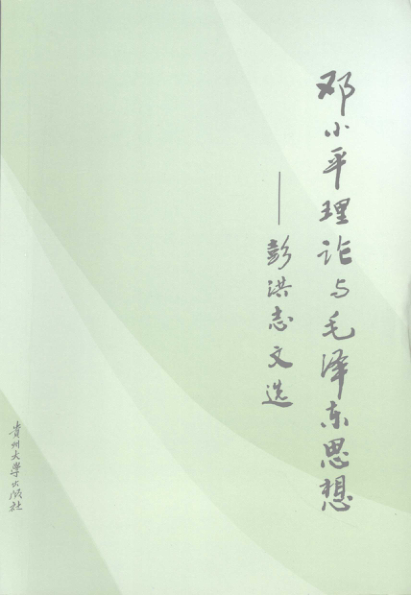 邓小平理论与毛泽东思想
——彭洪志文选
贵州大学出版社